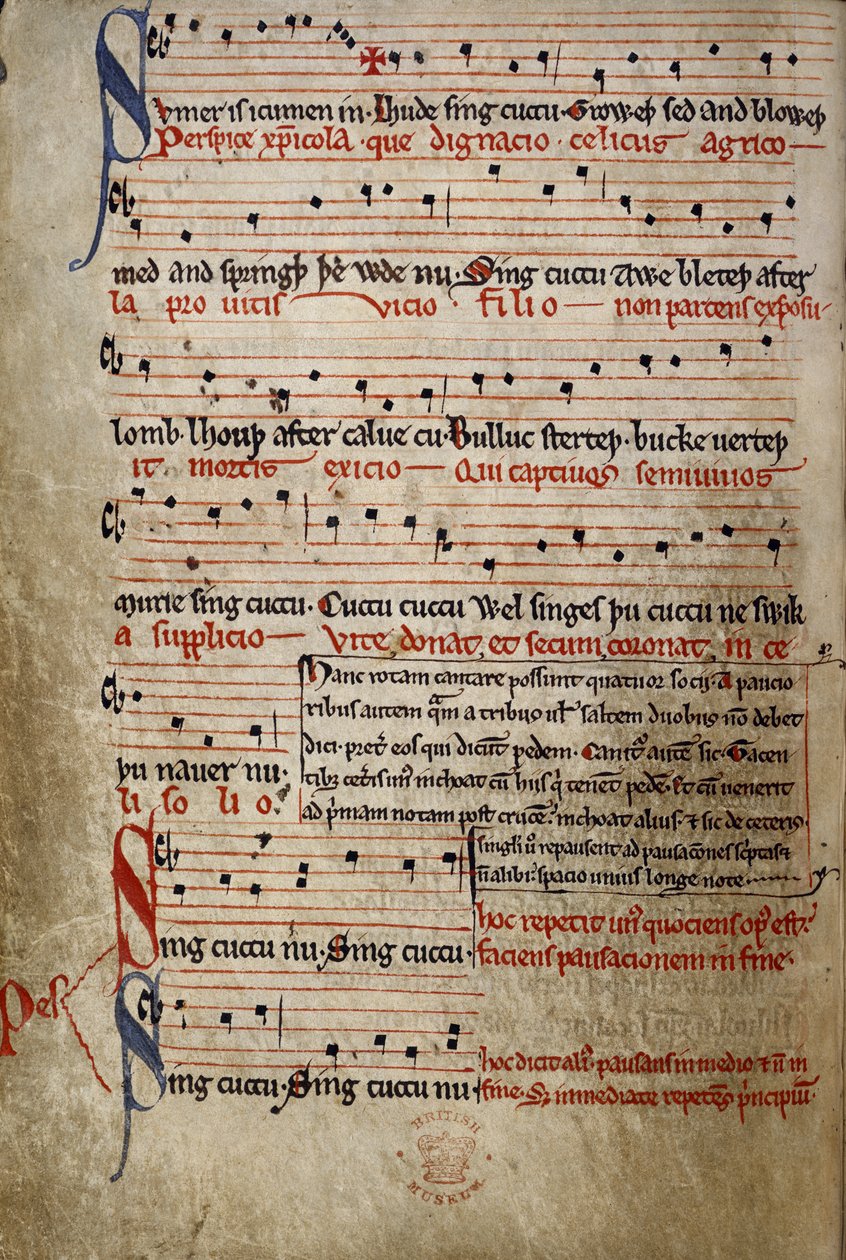 Svmer is icumen in. Lhude sing cuccu. Groweþ sed and bloweþ
Perspice xp̄icola · que dignacio · celicus agrico
med and springþ þe wde nu. Sing cuccu Awe bleteþ after
la pro uitis vicio · filio non parcens exposu
lomb. lhouþ after calue cu. Bulluc sterteþ. bucke uerteþ
it mortis exicio Qui captiuos semiuiuos
murie sing cuccu. Cuccu cuccu Wel singes þu cuccu ne swik
a supplicio vite donat, et secum coronat, in ce
þu nauer nu.
li so li o.
Hanc rotam cantare possunt quatuor socij. A paucio
ribus autem qͣm a tribus ul̄ saltem duobus nō debet
dici. pret̾ eos qui dicūt pedem. Cantat̾ autē sic. Tacen
tibȝ cet̾is unꝰ inchoat cū hiis q̇ tenēt pedē. Et cū uenerit
ad p̾mam notam post crucē: inchoat alius. ⁊ sic de ceteris.
singli ū repausent ad pausacōnes sc̾ptas ⁊
n̄ alibi: spacio unius longe note
Pes
Sing cuccu nu. Sing cuccu.
hoc repetit unꝰ quociens opꝰ est:
faciens pausacionem in fine.
Sing cuccu. Sing cuccu nu
hoc dicit aliꝰ. pausans in medio ⁊ n̄ in
fine. Sȝ inmediate repetēs p̾ncipiū.
BRITISH
MUSEUM